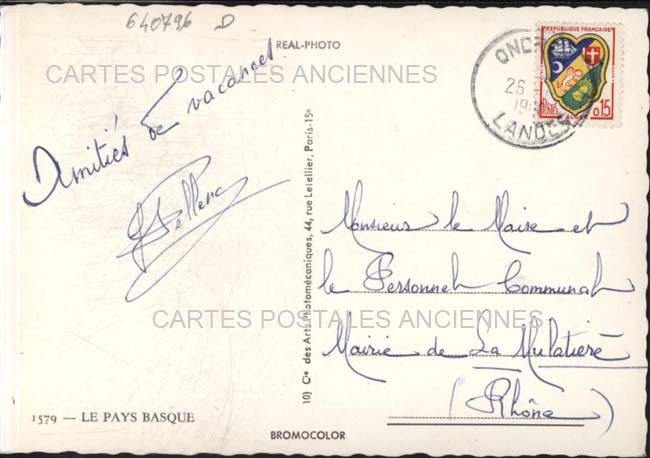 640796 D
REAL-PHOTO
CARTES POSTALES ANCIENNES
Amitiés de vacances.
REPUBLIQUE FRANÇAISE
POSTES
ALGER
0,15
26
19
LANDES
10) Cie des Arts Photomécaniques, 44, rue Letellier, Paris-15e
Monsieur le Maire et
le Personnel Communal
CARTES POSTALES ANCIENNES
Mairie de La Mulatière
(Rhône)
1579 — LE PAYS BASQUE
BROMOCOLOR